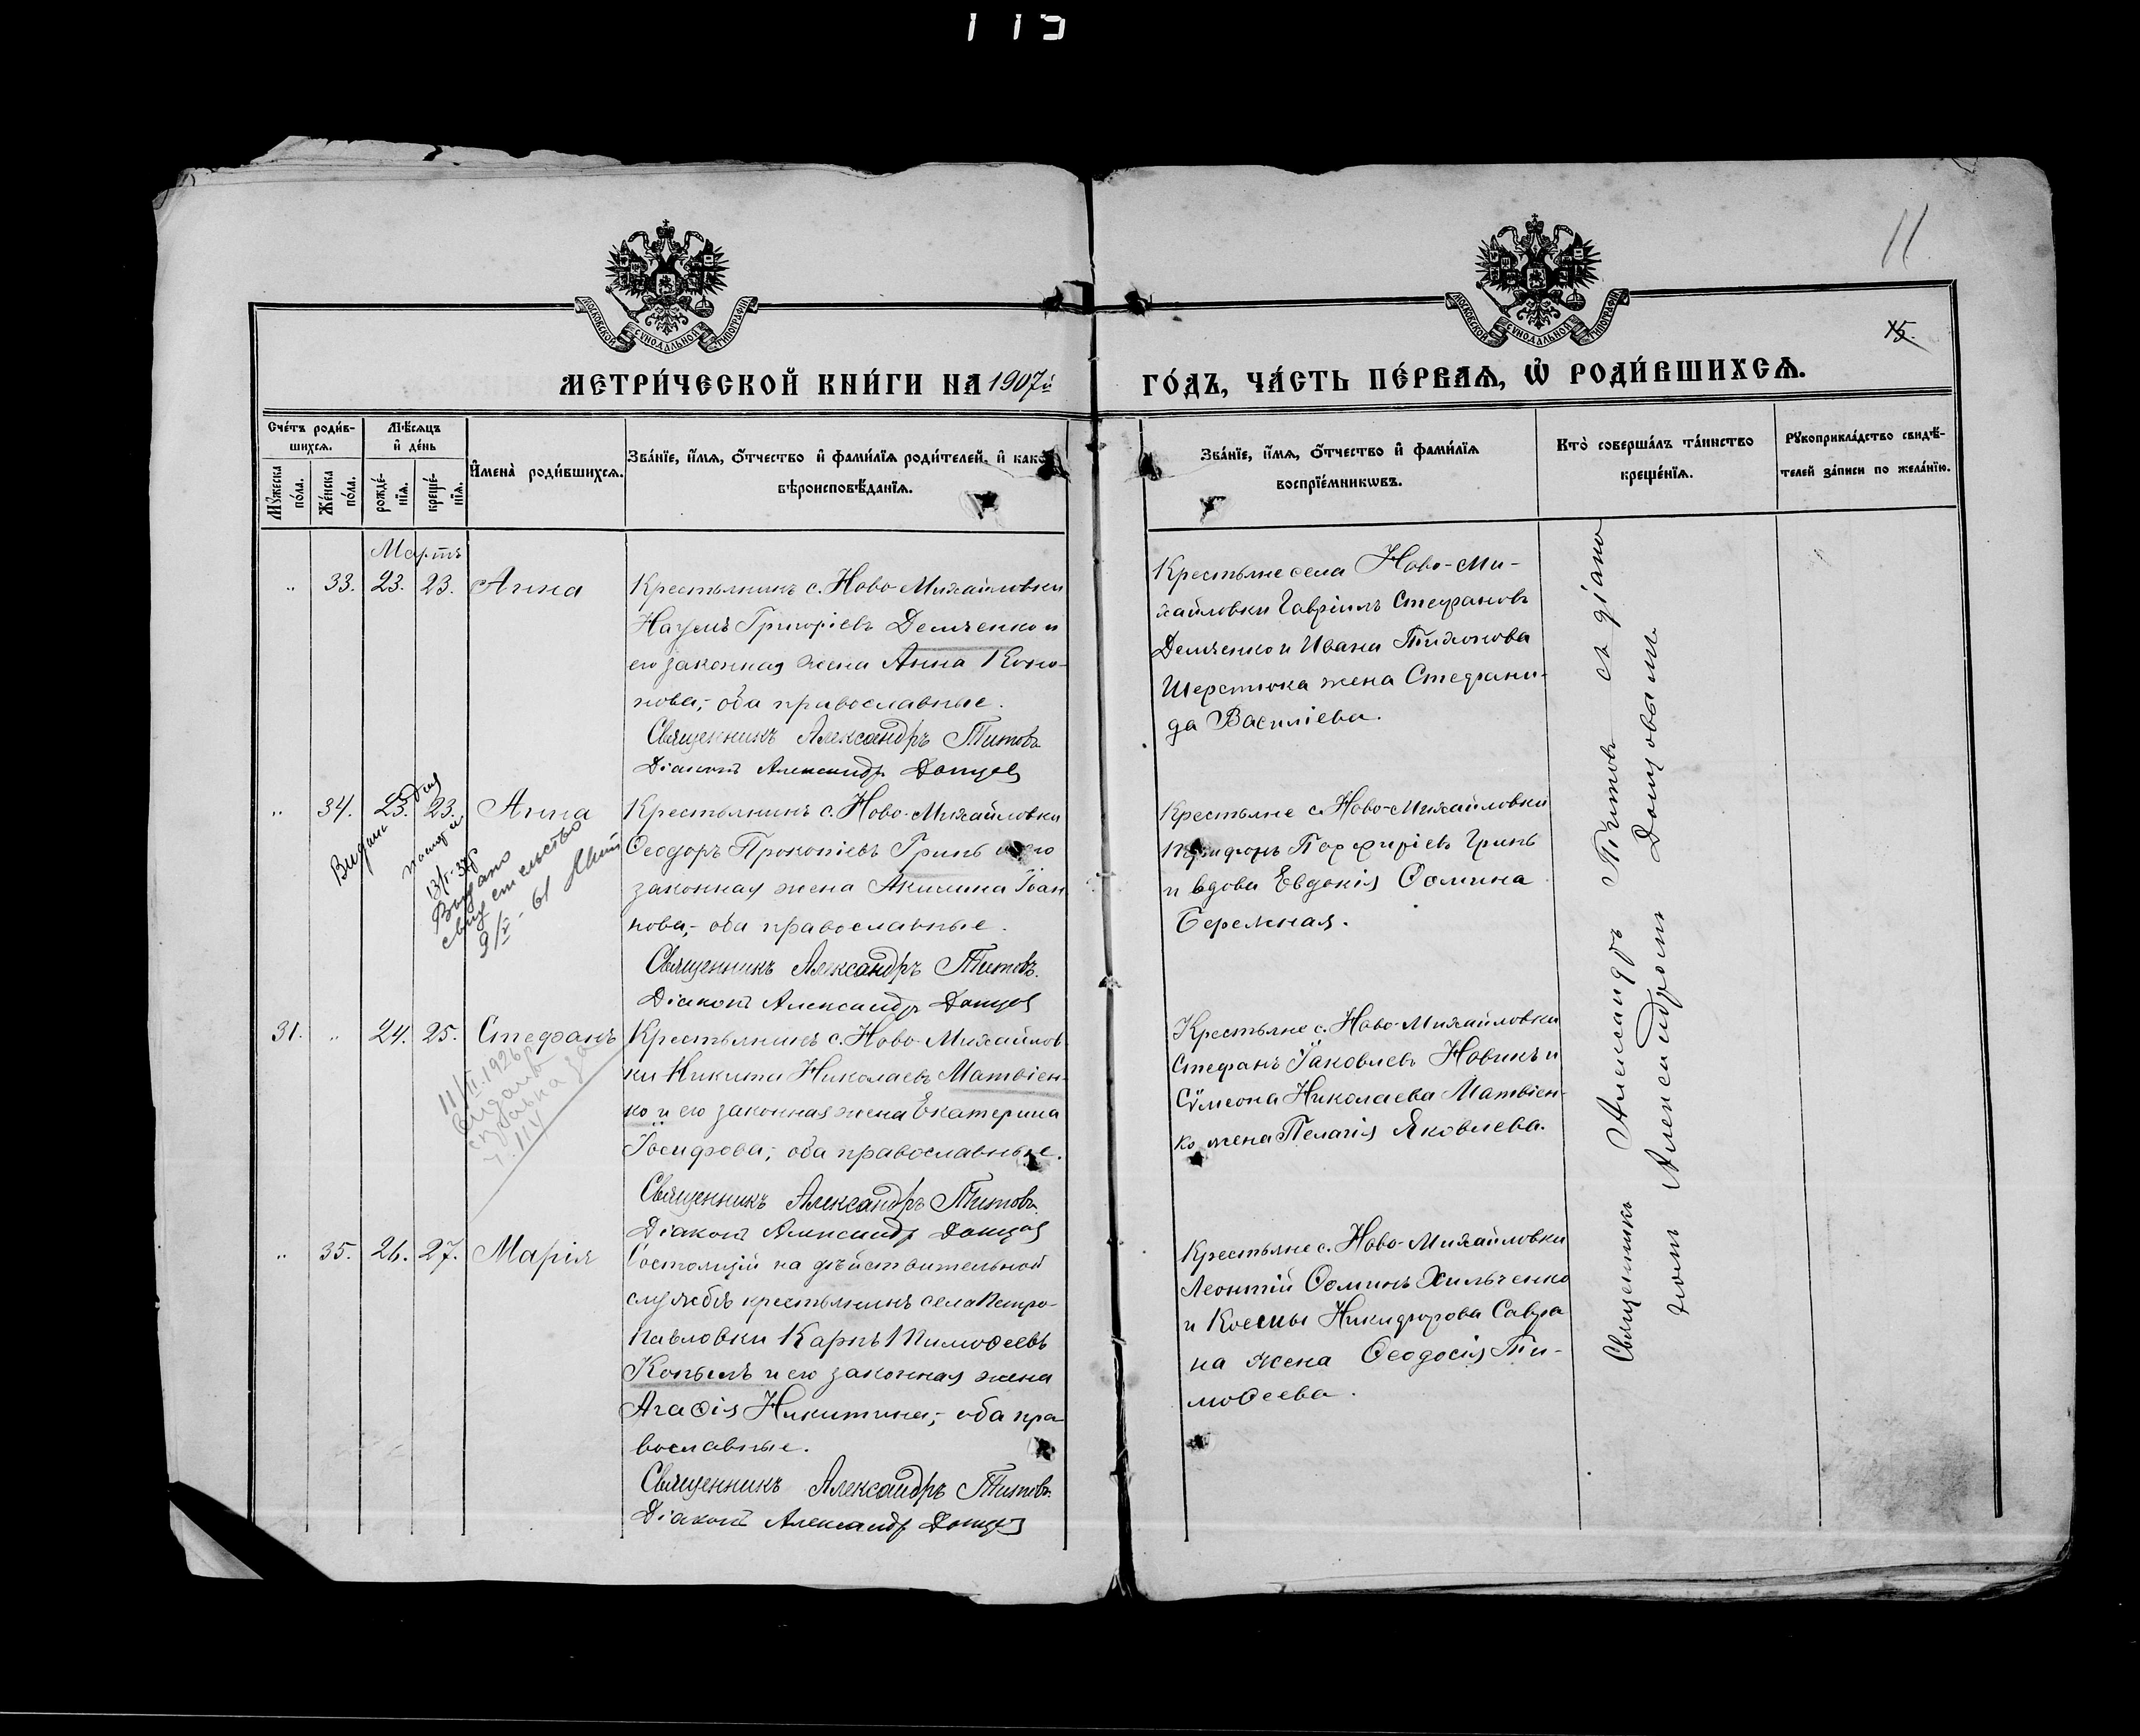 115
11
15.
МОСКОВСКОЙ СѴНОДАЛЬНОЙ ТИПОГРАФІИ
МОСКОВСКОЙ СѴНОДАЛЬНОЙ ТИПОГРАФІИ
МЕТРИ́ЧЕСКОЙ КНИ́ГИ НА 1907й ГО́ДЪ, ЧА́СТЬ ПЕ́РВАѦ, Ѡ҆ РОДИ́ВШИХСѦ.
Сче́тъ роди́в-
шихсѧ.
Мꙋ́жеска по́ла.
Же́нска по́ла.
Мѣ́сѧцъ
и҆ де́нь
рожде́-
нїѧ.
креще́-
нїѧ.
И҆мена̀ роди́вшихсѧ.
Зва́нїе, и҆́мѧ, ѻ҆́тчество и҆ фами́лїѧ роди́телей, и҆ како
вѣроисповѣ́данїѧ.
Зва́нїе, и҆́мѧ, ѻ҆́тчество и҆ фами́лїѧ
воспрїе́мникѡвъ.
Кто̀ соверша́лъ та́инство
креще́нїѧ.
Рꙋкоприкла́дство свидѣ́-
телей за́писи по жела́нїю.
Мартъ
" 33. 23. 23. Анна
Крестьянинъ с. Ново-Михайловки
Наумъ Григоріевъ Демченко и
его законная жена Анна Коно-
нова,- оба православные.
Священникъ Александръ Титовъ.
Діаконъ Александр Донцов
Крестьяне села Ново-Ми-
хайловки Гавріилъ Стефановъ
Демченко и Ивана Тихонова
Шерстюка жена Стефани-
да Василіева.
" 34. 23. 23. Анна
Видана
13/І-37р
Выдано
свидетельство
9/V-61
Крестьянинъ с. Ново-Михайловки
Ѳеодоръ Прокопіевъ Гринь и его
законная жена Акилина Іоан
нова,- оба православные.
Священникъ Александръ Титовъ.
Діаконъ Александр Донцов
Крестьяне с. Ново-Михайловки
Порфиріевъ Гринь
и вдова Евдокія Ѳомина
Бережная.
31. " 24. 25. Стефанъ
11/VI.1926р
видана
справка за
ч. 114
Крестьянинъ с. Ново-Михайлов
ки Никита Николаевъ Матвіен-
ко и его законная жена Екатерина
Іосифова; оба православные.
Священникъ Александръ Титовъ.
Діаконъ Александр Донцов
Крестьяне с. Ново-Михайловки
Стефанъ Іаковлевъ Новикъ и
Сѵмеона Николаева Матвіен-
ко жена Пелагія Яковлева.
" 35. 26. 27. Марія
Состоящій на дѣйствительной
службѣ крестьянинъ села Петро-
павловки Карпъ Тимоѳеевъ
Копылъ и его законная жена
Агаѳія Никитина,- оба пра-
вославные.
Священникъ Александръ Титовъ.
Діаконъ Александр Донцов
Крестьяне с. Ново-Михайловки
Леонтій Ѳоминъ Хильченко
и Космы Никифорова Савра
на жена Ѳеодосія Ти-
моѳеева.
Священникъ Александръ Титовъ съ діако
номъ Александромъ Донцовымъ.